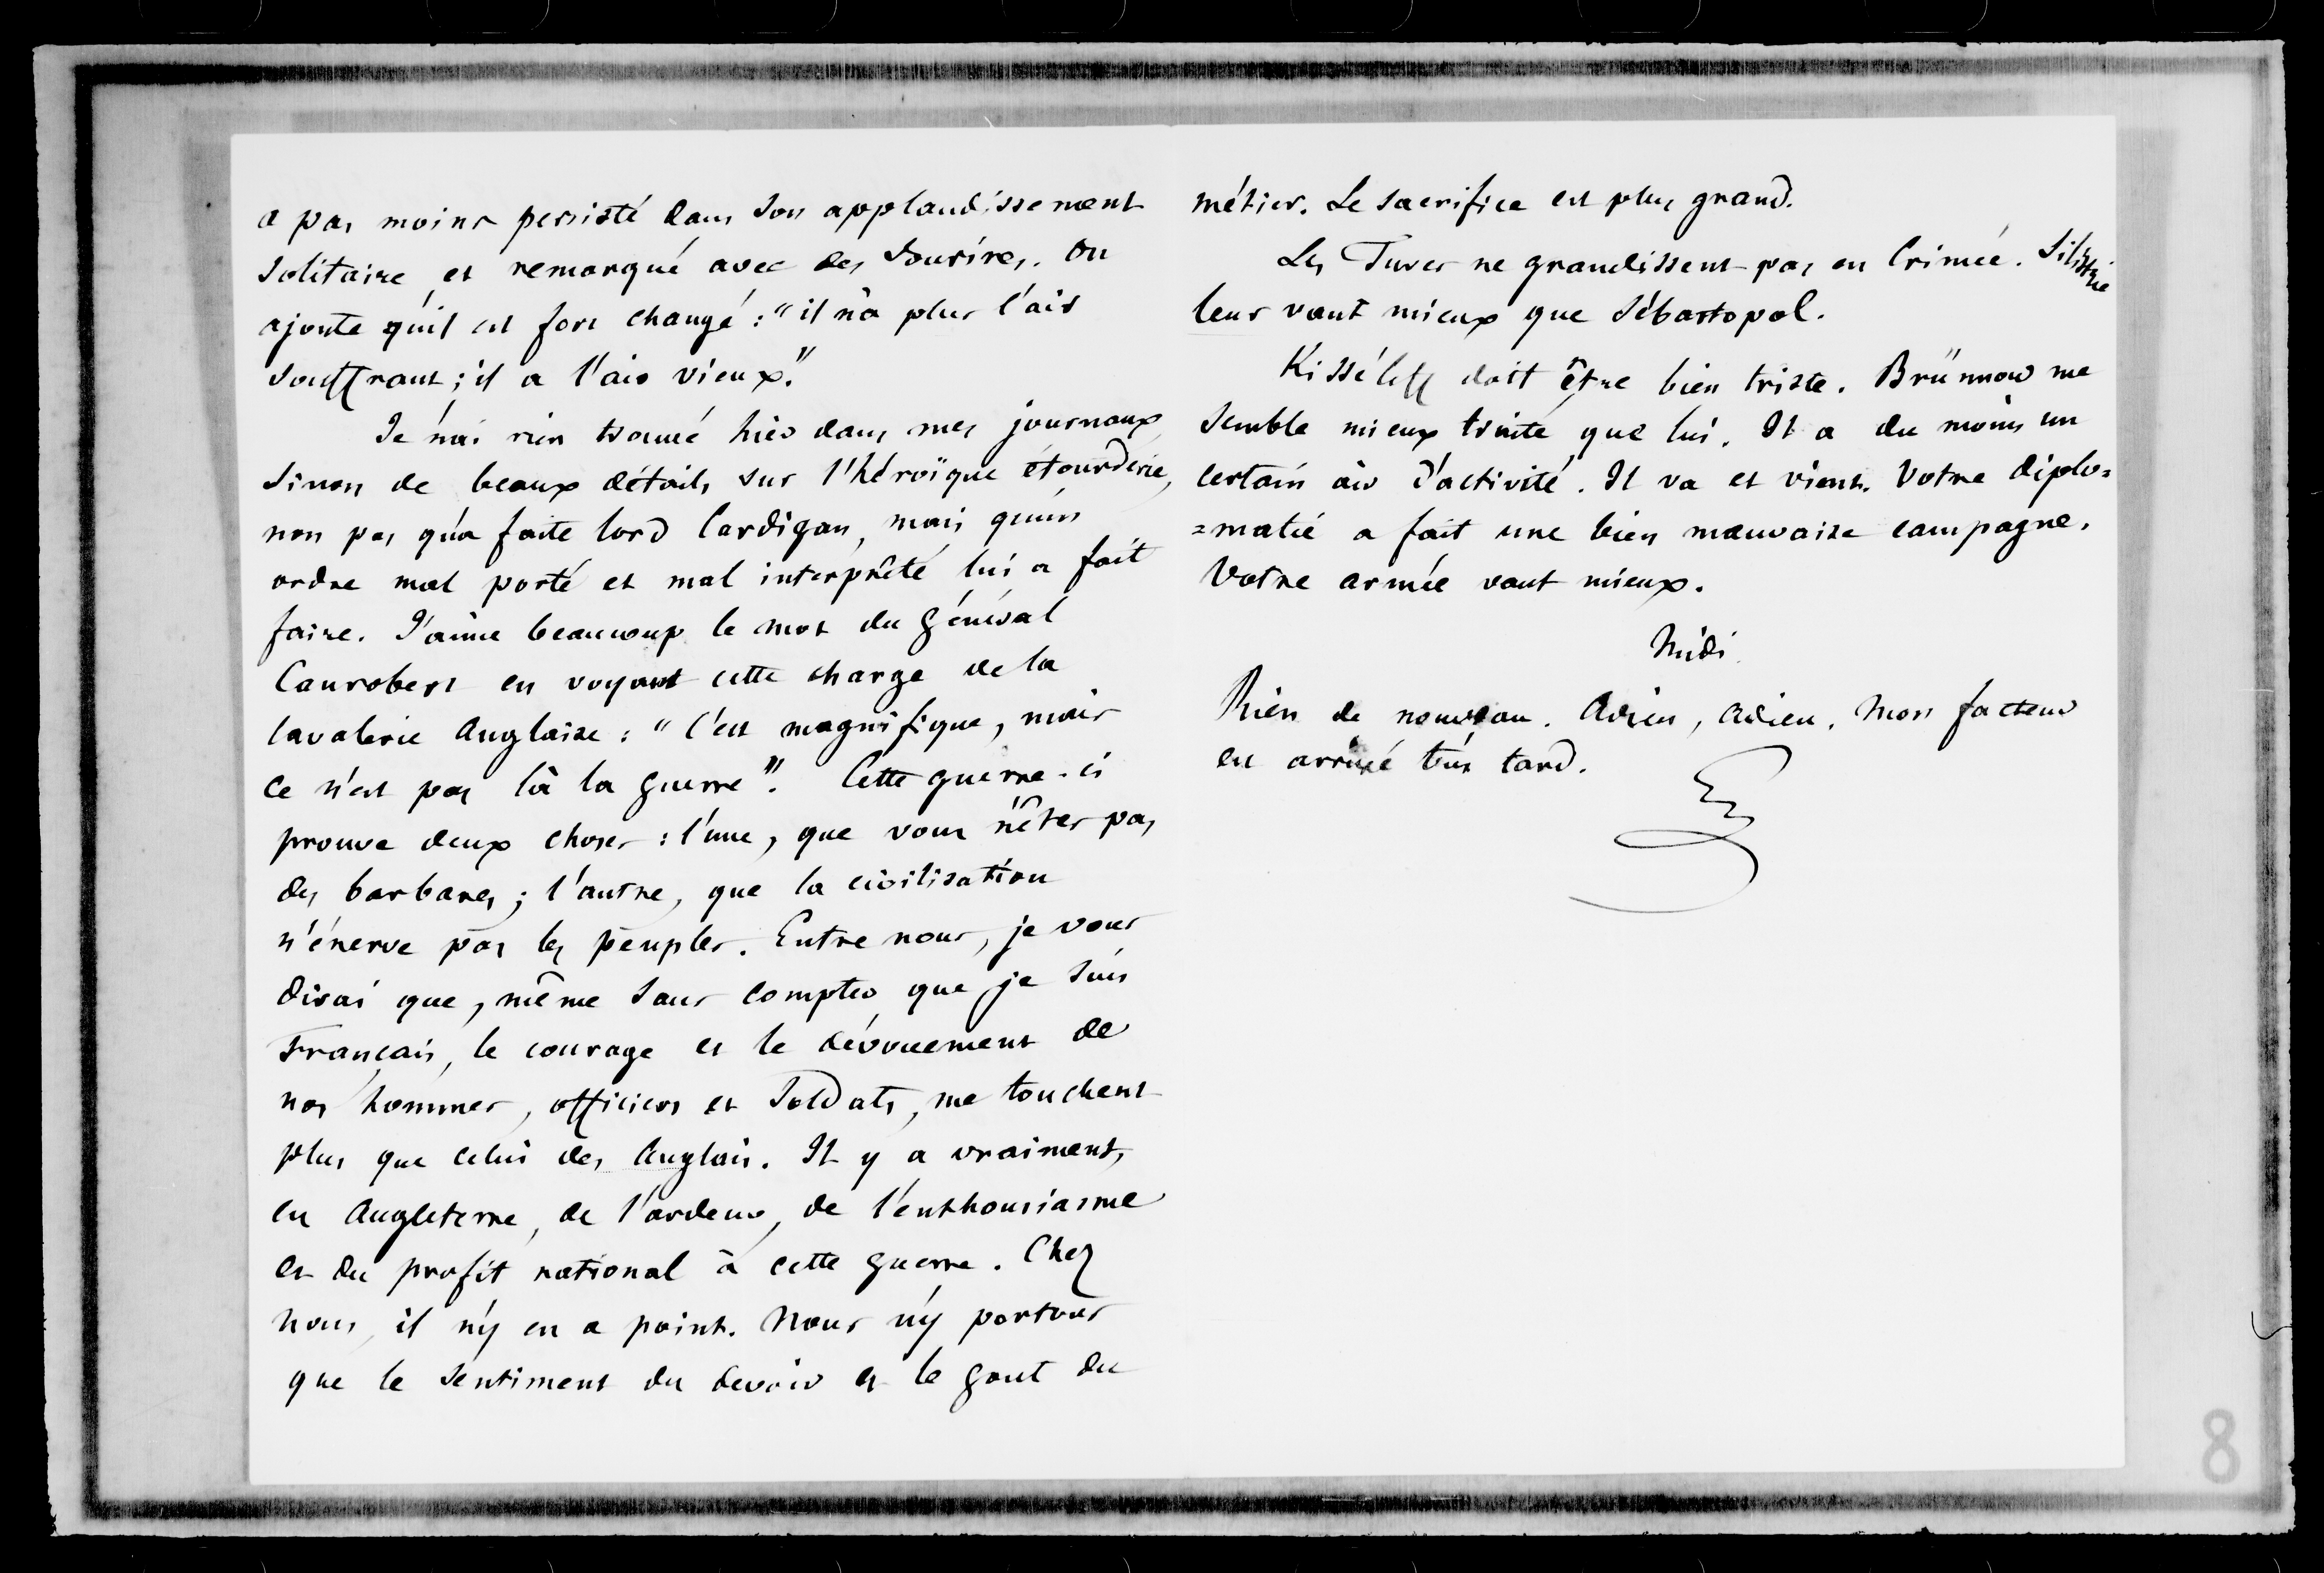 a pas moins persisté dans son applaudissement
solitaire et remarqué avec des sourires. On
ajoute qu'il est fort changé : "il n'a plus l'air
souffrant ; il a l'air vieux."
Je n'ai rien trouvé hier dans mes journaux,
sinon de beaux détails sur l'héroïque étourderie,
non pas qu'a faite lord Cardigan, mais qu'un
ordre mal porté et mal interprêté lui a fait
faire. J'aime beaucoup le mot du général
Canrobert en voyant cette charge de la
cavalerie Anglaise : "C'est magnifique, mais
ce n'est pas là la guerre". Cette guerre-ci
prouve deux choses : l'une, que vous n'êtes pas
des barbares ; l'autre, que la civilisation
n'énerve pas les peuples. Entre nous, je vous
dirai que, même sans compter que je suis
Français, le courage et le dévouement de
nos hommes, officiers et soldats, me touchent
plus que celui des Anglais. Il y a vraiment,
en Angleterre, de l'ardeur, de l'enthousiasme
et du profit national à cette guerre. Chez
nous, il n'y en a point. Nous n'y portons
que le sentiment du devoir et le gout du
métier. Le sacrifice est plus grand.
Les Turcs ne grandissent pas en Crimée. Silistrie
leur vaut mieux que Sébastopol.
Kisséleff doit être bien triste. Brünnow me
semble mieux traité que lui. Il a du moins un
certain air d'activité. Il va et vient. Votre diplo=
=matie a fait une bien mauvaise campagne.
Votre armée vaut mieux.
Midi
Rien de nouveau. Adieu, Adieu. Mon facteur
est arrivé très tard.
8